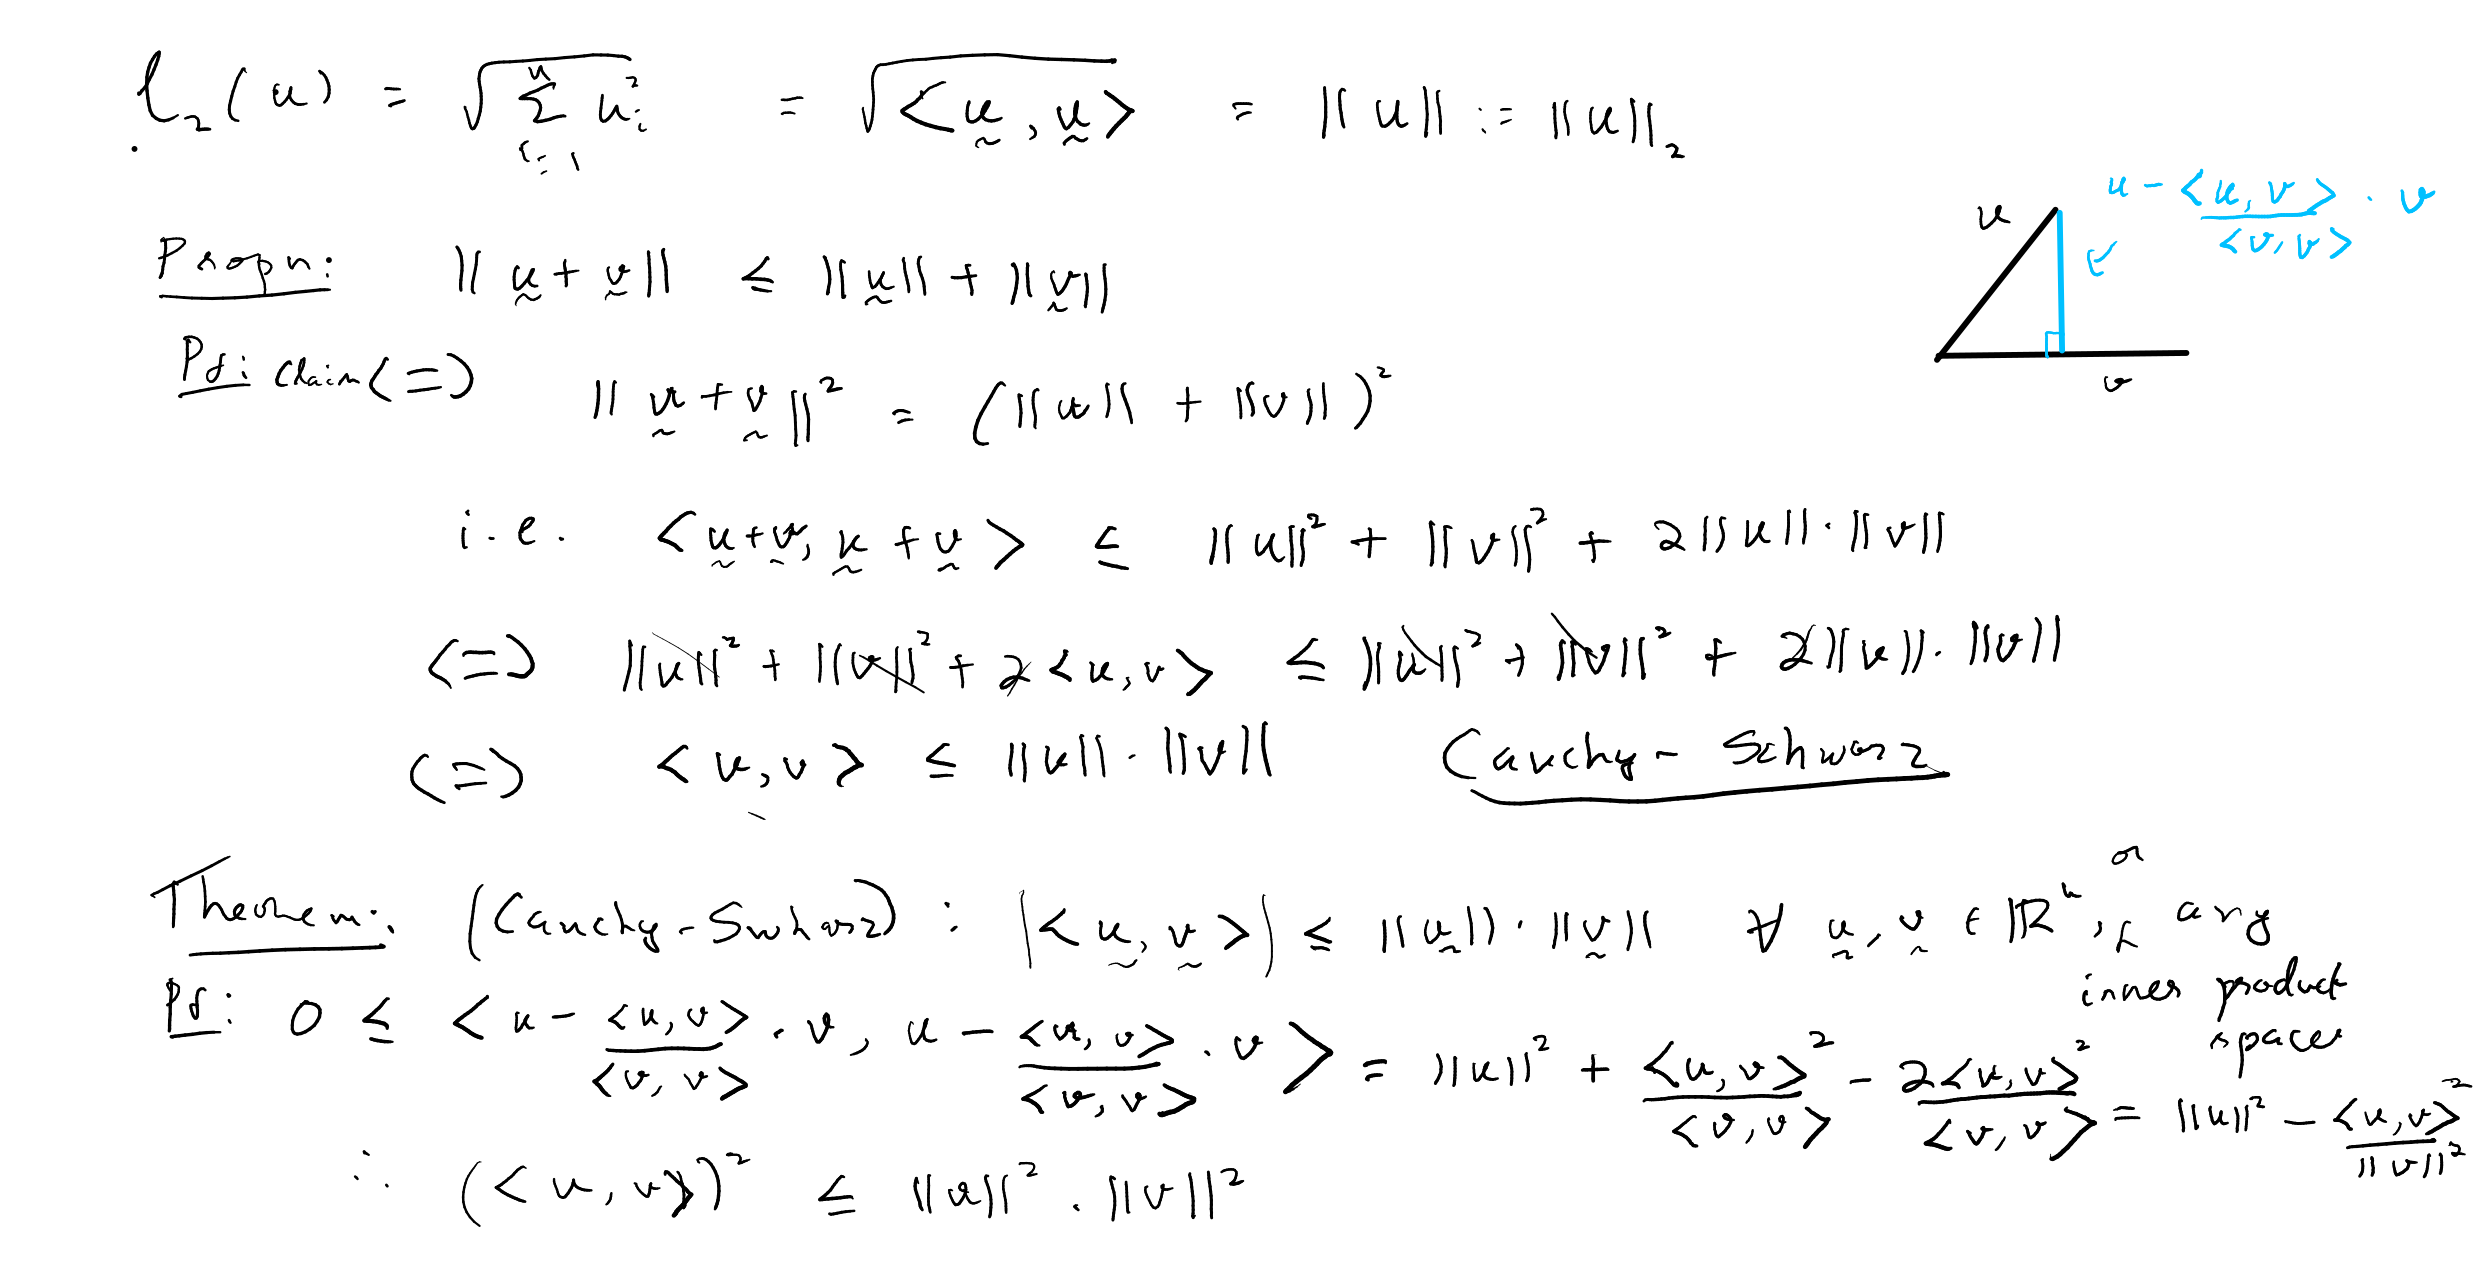 l₂(u) = √(∑_{i=1}^{n} u_i²) = √<u, u> = ||u|| := ||u||₂
u - <u, v>/<v, v> · v
u
Propn: ||u + v|| ≤ ||u|| + ||v||
v
Pf: Claim <=> ||u + v||² = (||u|| + ||v||)²
i.e. <u+v, u+v> ≤ ||u||² + ||v||² + 2||u||·||v||
<=> ||u||² + ||v||² + 2<u, v> ≤ ||u||² + ||v||² + 2||u||·||v||
<=> <u, v> ≤ ||u||·||v|| Cauchy-Schwarz
Theorem: (Cauchy-Swharz) : |<u, v>| ≤ ||u||·||v|| ∀ u, v ∈ ℝⁿ, or any inner product space
Pf: 0 ≤ <u - <u, v>/<v, v> · v, u - <u, v>/<v, v> · v> = ||u||² + <u, v>²/<v, v> - 2<u, v>²/<v, v> = ||u||² - <u, v>²/||v||²
∴ (<u, v>)² ≤ ||u||² · ||v||²